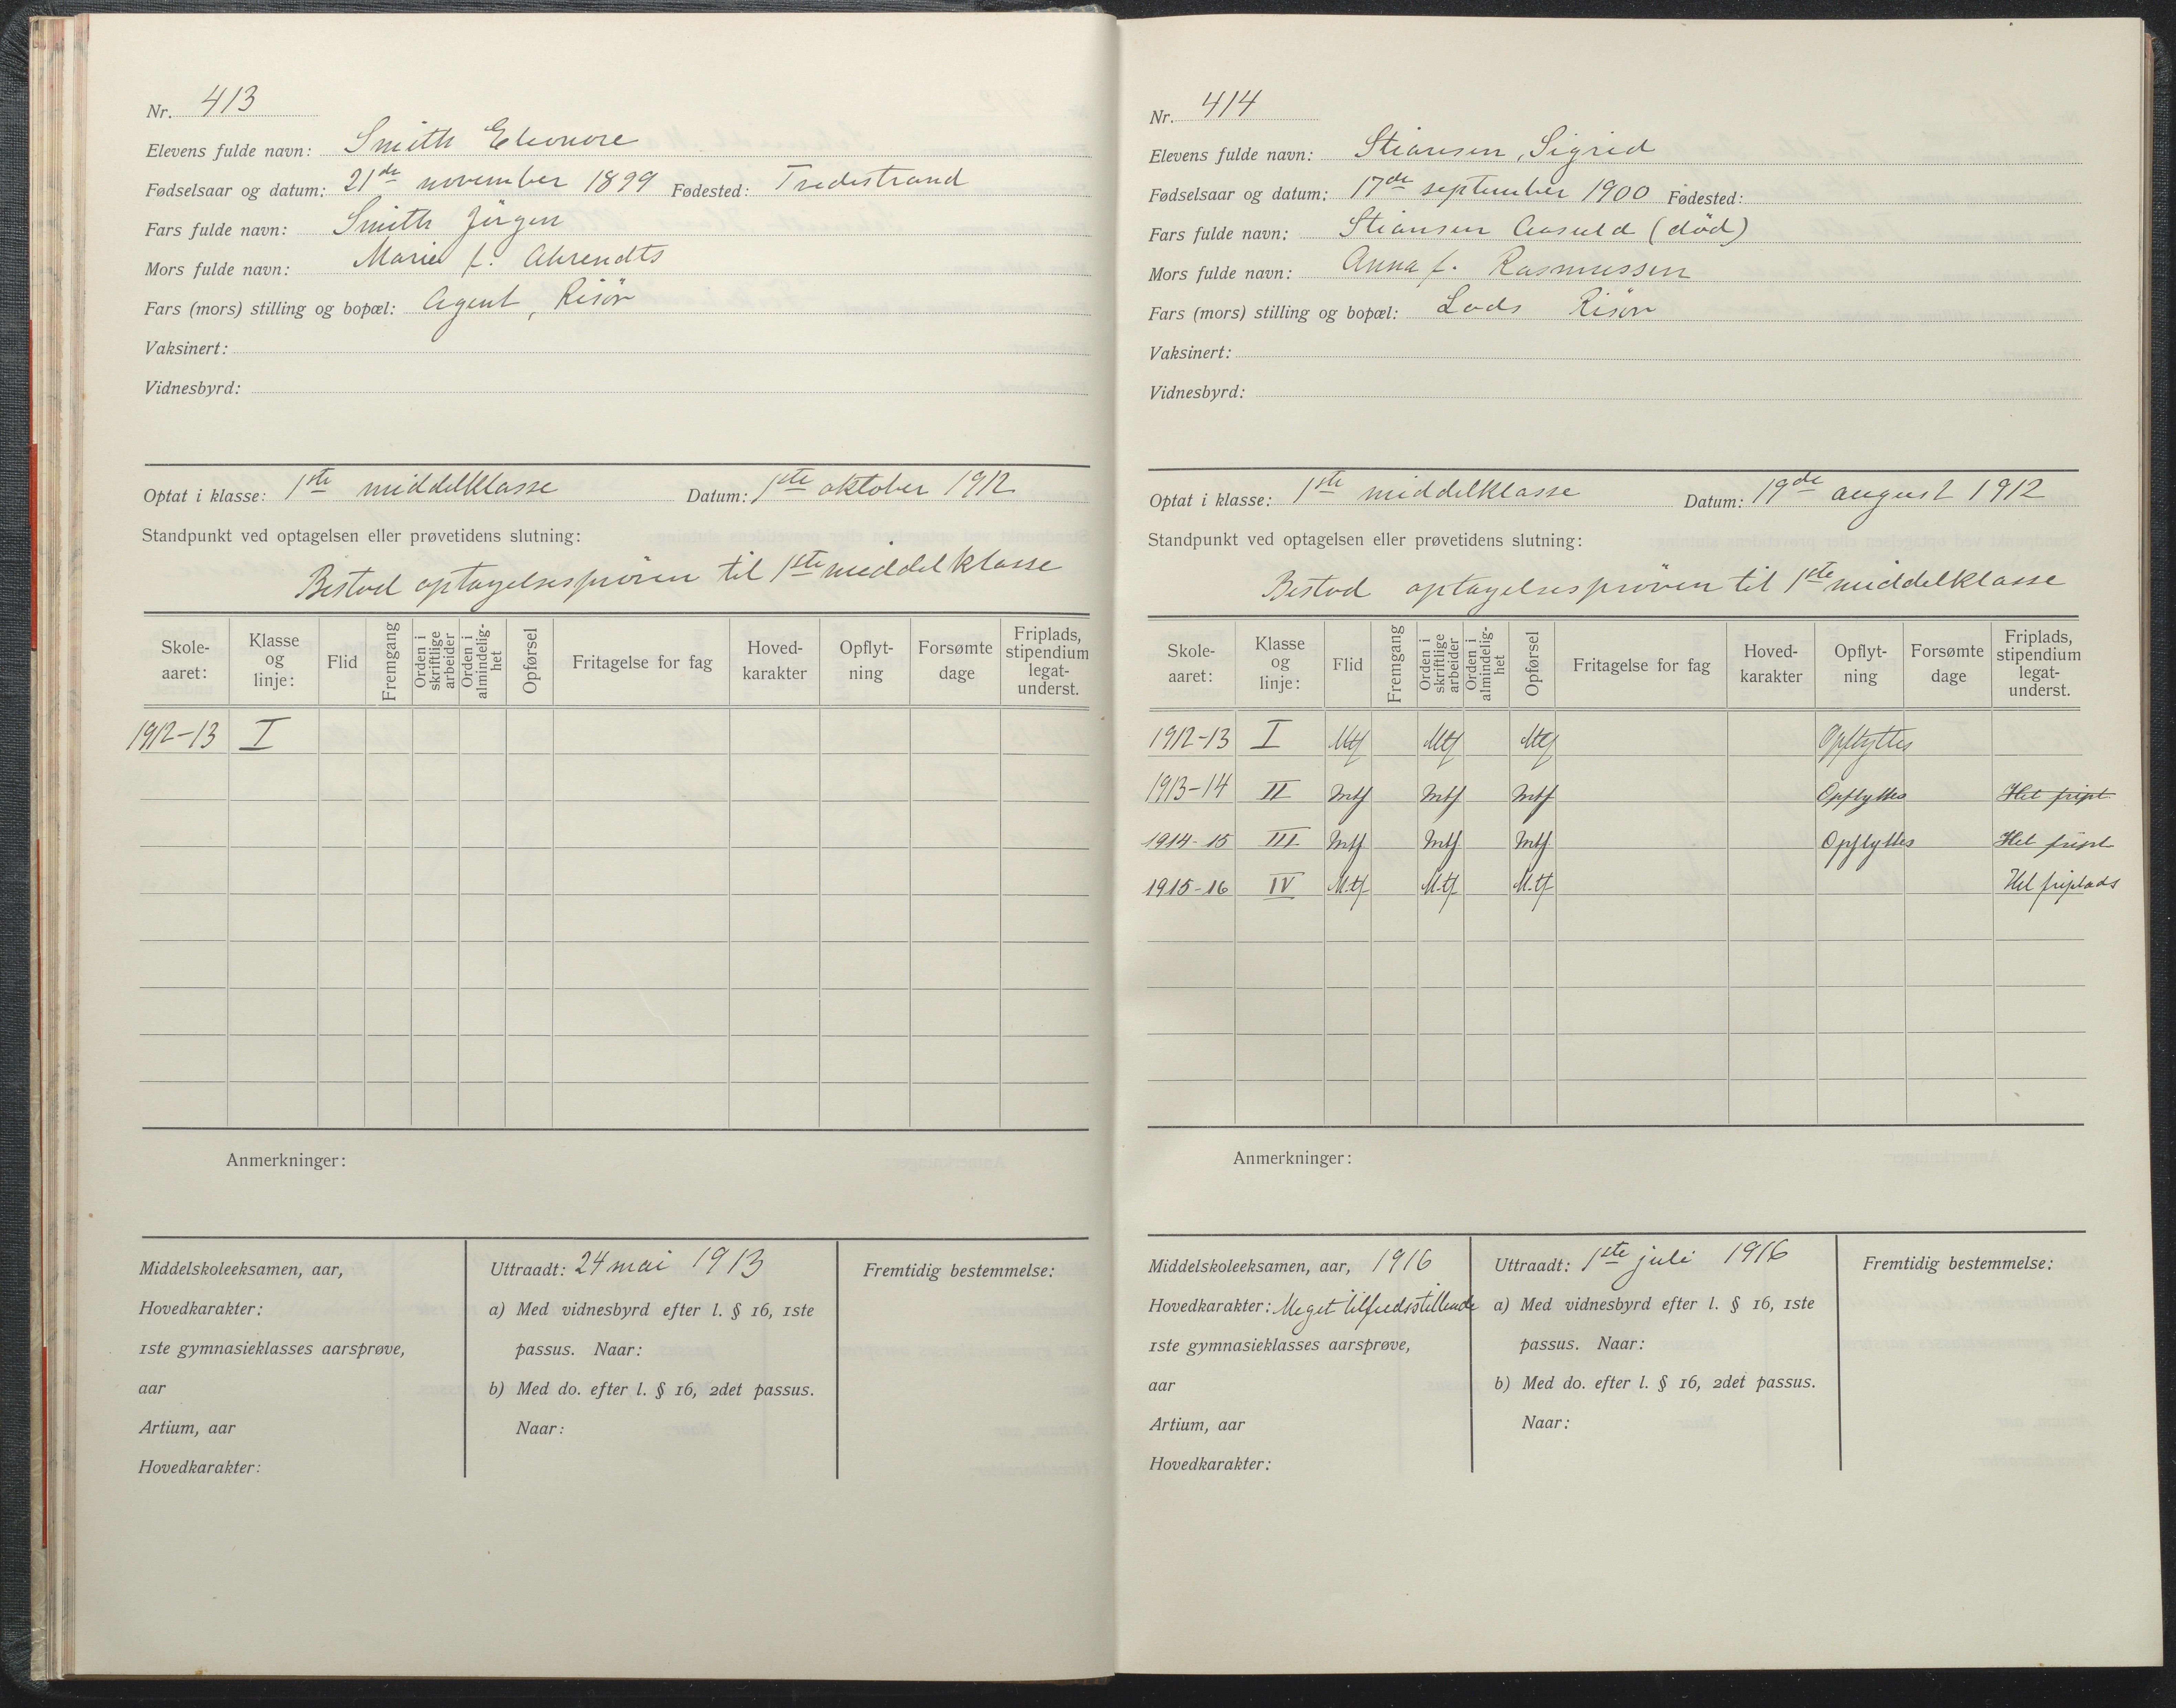 Nr. 413
Elevens fulde navn: Smith Eleonore
Fødselsaar og datum: 21de november 1899 Fødested: Tvedestrand
Fars fulde navn: Smith Jörgen
Mors fulde navn: Marie f. Ahrendts
Fars (mors) stilling og bopæl: Agent, Risör
Vaksinert:
Vidnesbyrd:
Optat i klasse: 1ste middelklasse Datum: 1ste oktober 1912
Standpunkt ved optagelsen eller prøvetidens slutning:
Bestod optagelsespröven til 1ste middelklasse
Skole-aaret: Klasse og linje: Flid Fremgang Orden i skriftlige arbeider Orden i almindelig-het Opførsel Fritagelse for fag Hoved-karakter Opflyt-ning Forsømte dage Friplads, stipendium legat-underst.
1912-13 I
Anmerkninger:
Middelskoleeksamen, aar,
Hovedkarakter:
1ste gymnasieklasses aarsprøve,
aar
Artium, aar
Hovedkarakter:
Uttraadt: 24 mai 1913
a) Med vidnesbyrd efter l. § 16, 1ste
passus. Naar:
b) Med do. efter l. § 16, 2det passus.
Naar:
Fremtidig bestemmelse:
Nr. 414
Elevens fulde navn: Stiansen, Sigrid
Fødselsaar og datum: 17de september 1900 Fødested:
Fars fulde navn: Stiansen Aasuld (död)
Mors fulde navn: Anna f. Rasmussen
Fars (mors) stilling og bopæl: Lods Risör
Vaksinert:
Vidnesbyrd:
Optat i klasse: 1ste middelklasse Datum: 19de august 1912
Standpunkt ved optagelsen eller prøvetidens slutning:
Bestod optagelsespröven til 1ste middelklasse
Skole-aaret: Klasse og linje: Flid Fremgang Orden i skriftlige arbeider Orden i almindelig-het Opførsel Fritagelse for fag Hoved-karakter Opflyt-ning Forsømte dage Friplads, stipendium legat-underst.
1912-13 I Mtf Mtf Mtf Opflyttes
1913-14 II Mtf Mtf Mtf Opflyttes Hel fripl.
1914-15 III Mtf Mtf Mtf Opflyttes Hel fripl
1915-16 IV M.tf M.tf M.tf Hel friplads
Anmerkninger:
Middelskoleeksamen, aar, 1916
Hovedkarakter: Meget tilfredsstillende
1ste gymnasieklasses aarsprøve,
aar
Artium, aar
Hovedkarakter:
Uttraadt: 1ste juli 1916
a) Med vidnesbyrd efter l. § 16, 1ste
passus. Naar:
b) Med do. efter l. § 16, 2det passus.
Naar:
Fremtidig bestemmelse: